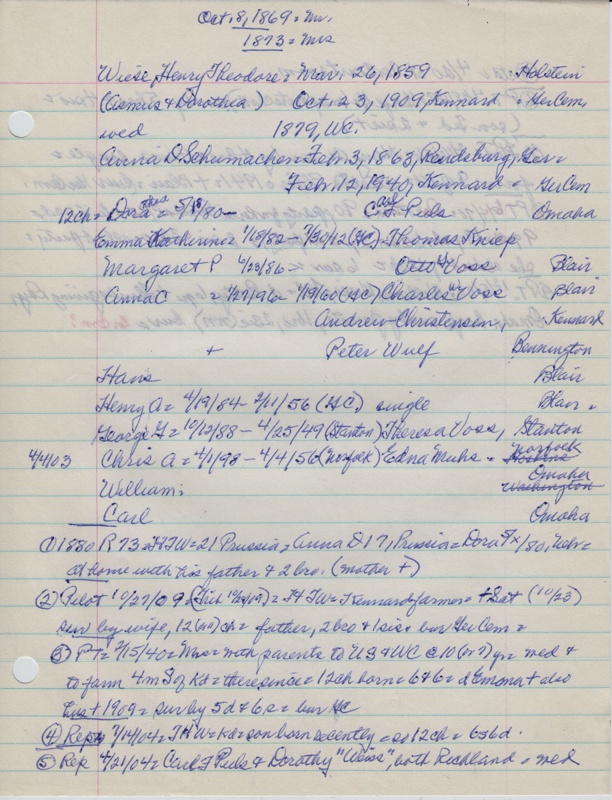 Oct. 8, 1869 = Mr.
1873 = Mrs
Wiese, Henry Theodore = Mar. 26, 1859 - Holstein
(Asmus & Dorothea) Oct. 23, 1909, Kennard = GerCem.
wed 1879, WC.
Anna D. Schumacher = Feb. 3, 1863, Rendsburg, Ger =
Feb. 12, 1940, Kennard = GerCem
12ch = Dora = 5/ /80 - Carl Puls Omaha
Emma Katherine = 1/18/82 - 7/30/12 (GC) = Thomas Kniep
Margaret P 4/28/86 - Otto Voss Blair
Anna C = 1/27/96 - 1/19/60 (GC) Charles Voss Blair
Andrew Christensen, Kennard
+ Peter Wulf Bennington
Hans Blair
Henry A = 4/19/84 - 2/11/56 (GC) single Blair.
George G = 10/12/88 - 4/25/49 (Stanton) Theresa Voss, Stanton
4/4/03 Chris A = 4/1/98 - 4/4/56 (Norfolk) Edna Muhs = Norfolk
William: Omaha Washington
Carl Omaha
① 1880 R 73 = HTW = 21 Prussia = Anna D 17, Prussia = Dora 5x/80, Nebr =
at home with his father & 2 bro. (mother +)
② Pilot 10/27/09 = = HTW = Kennard farmer = + Sat (10/23)
sur by wife, 12 ch = father, 2 bro & 1 sis = bur GerCem =
③ PT = 2/15/40 = Mrs = with parents to US & WC @ 10 (or 7) yr = wed &
to farm 4m S of Kd = there since = 12ch born = 6 & 6 = d Emma + also
hus + 1909 = sur by 5d & 6s = bur GC
④ Rep 7/14/04 = THW = Kd = son born recently = so 12ch = 6s 6d.
⑤ Rep 4/21/04 = Carl F Puls & Dorothy "Weiss", both Richland = wed